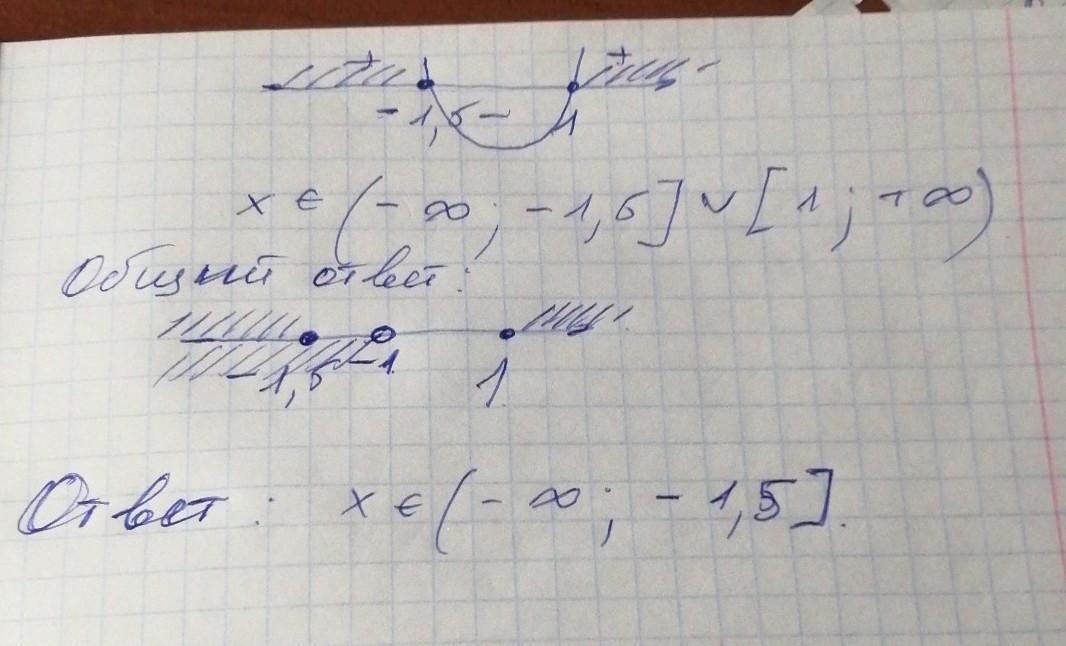 + +
-1,5 - 1
x ∈ (-∞; -1,5] ∪ [1; +∞)
Общий ответ:
-1,5 -1 1
Ответ: x ∈ (-∞; -1,5].